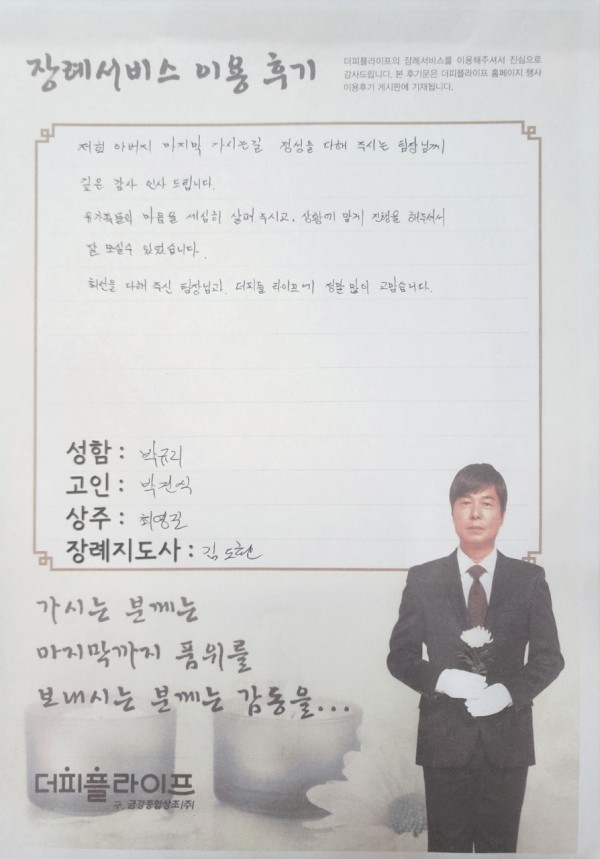 장례서비스 이용 후기
더피플라이프의 장례서비스를 이용해주셔서 진심으로
감사드립니다. 본 후기문은 더피플라이프 홈페이지 행사
이용후기 게시판에 기재됩니다.
저희 아버지 마지막 가시는길 정성을 다해 주시는 팀장님께
깊은 감사 인사 드립니다.
유가족들의 마음을 세심히 살펴 주시고, 상황에 맞게 진행을 해주셔서
잘 모실수 있었습니다.
최선을 다해 주신 팀장님과, 더피플 라이프에 정말 많이 고맙습니다.
성함 : 박규리
고인 : 박전식
상주 : 최영길
장례지도사 : 김도현
가시는 분께는
마지막까지 품위를
보내시는 분께는 감동을...
더피플라이프
구. 금강종합상조(주)